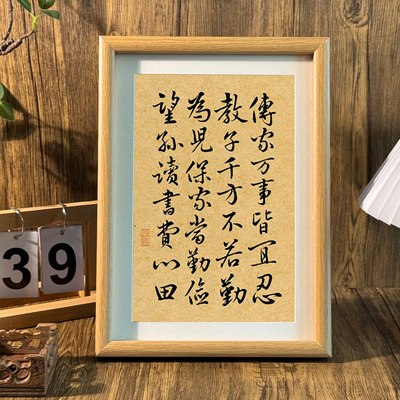 傳家万事皆宜忍
教子千方不若勤
為児保家當勤儉
望孫讀書費心田
39